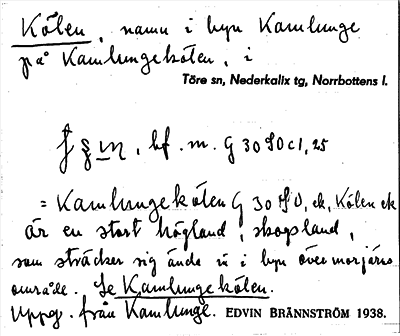 Kölen, namn i byn Kamlunge
på Kamlungekölen, i
Töre sn, Nederkalix tg, Norrbottens l.
bf. m. G 30 SO c1, 25
= Kamlungekölen G 30 SO, ek. Kölen ek
är en stort högland, skogsland,
som sträcker sig ända in i byn Övermorjärvs
område. Se Kamlungekölen.
Uppg. från Kamlunge. EDVIN BRÄNNSTRÖM 1938.